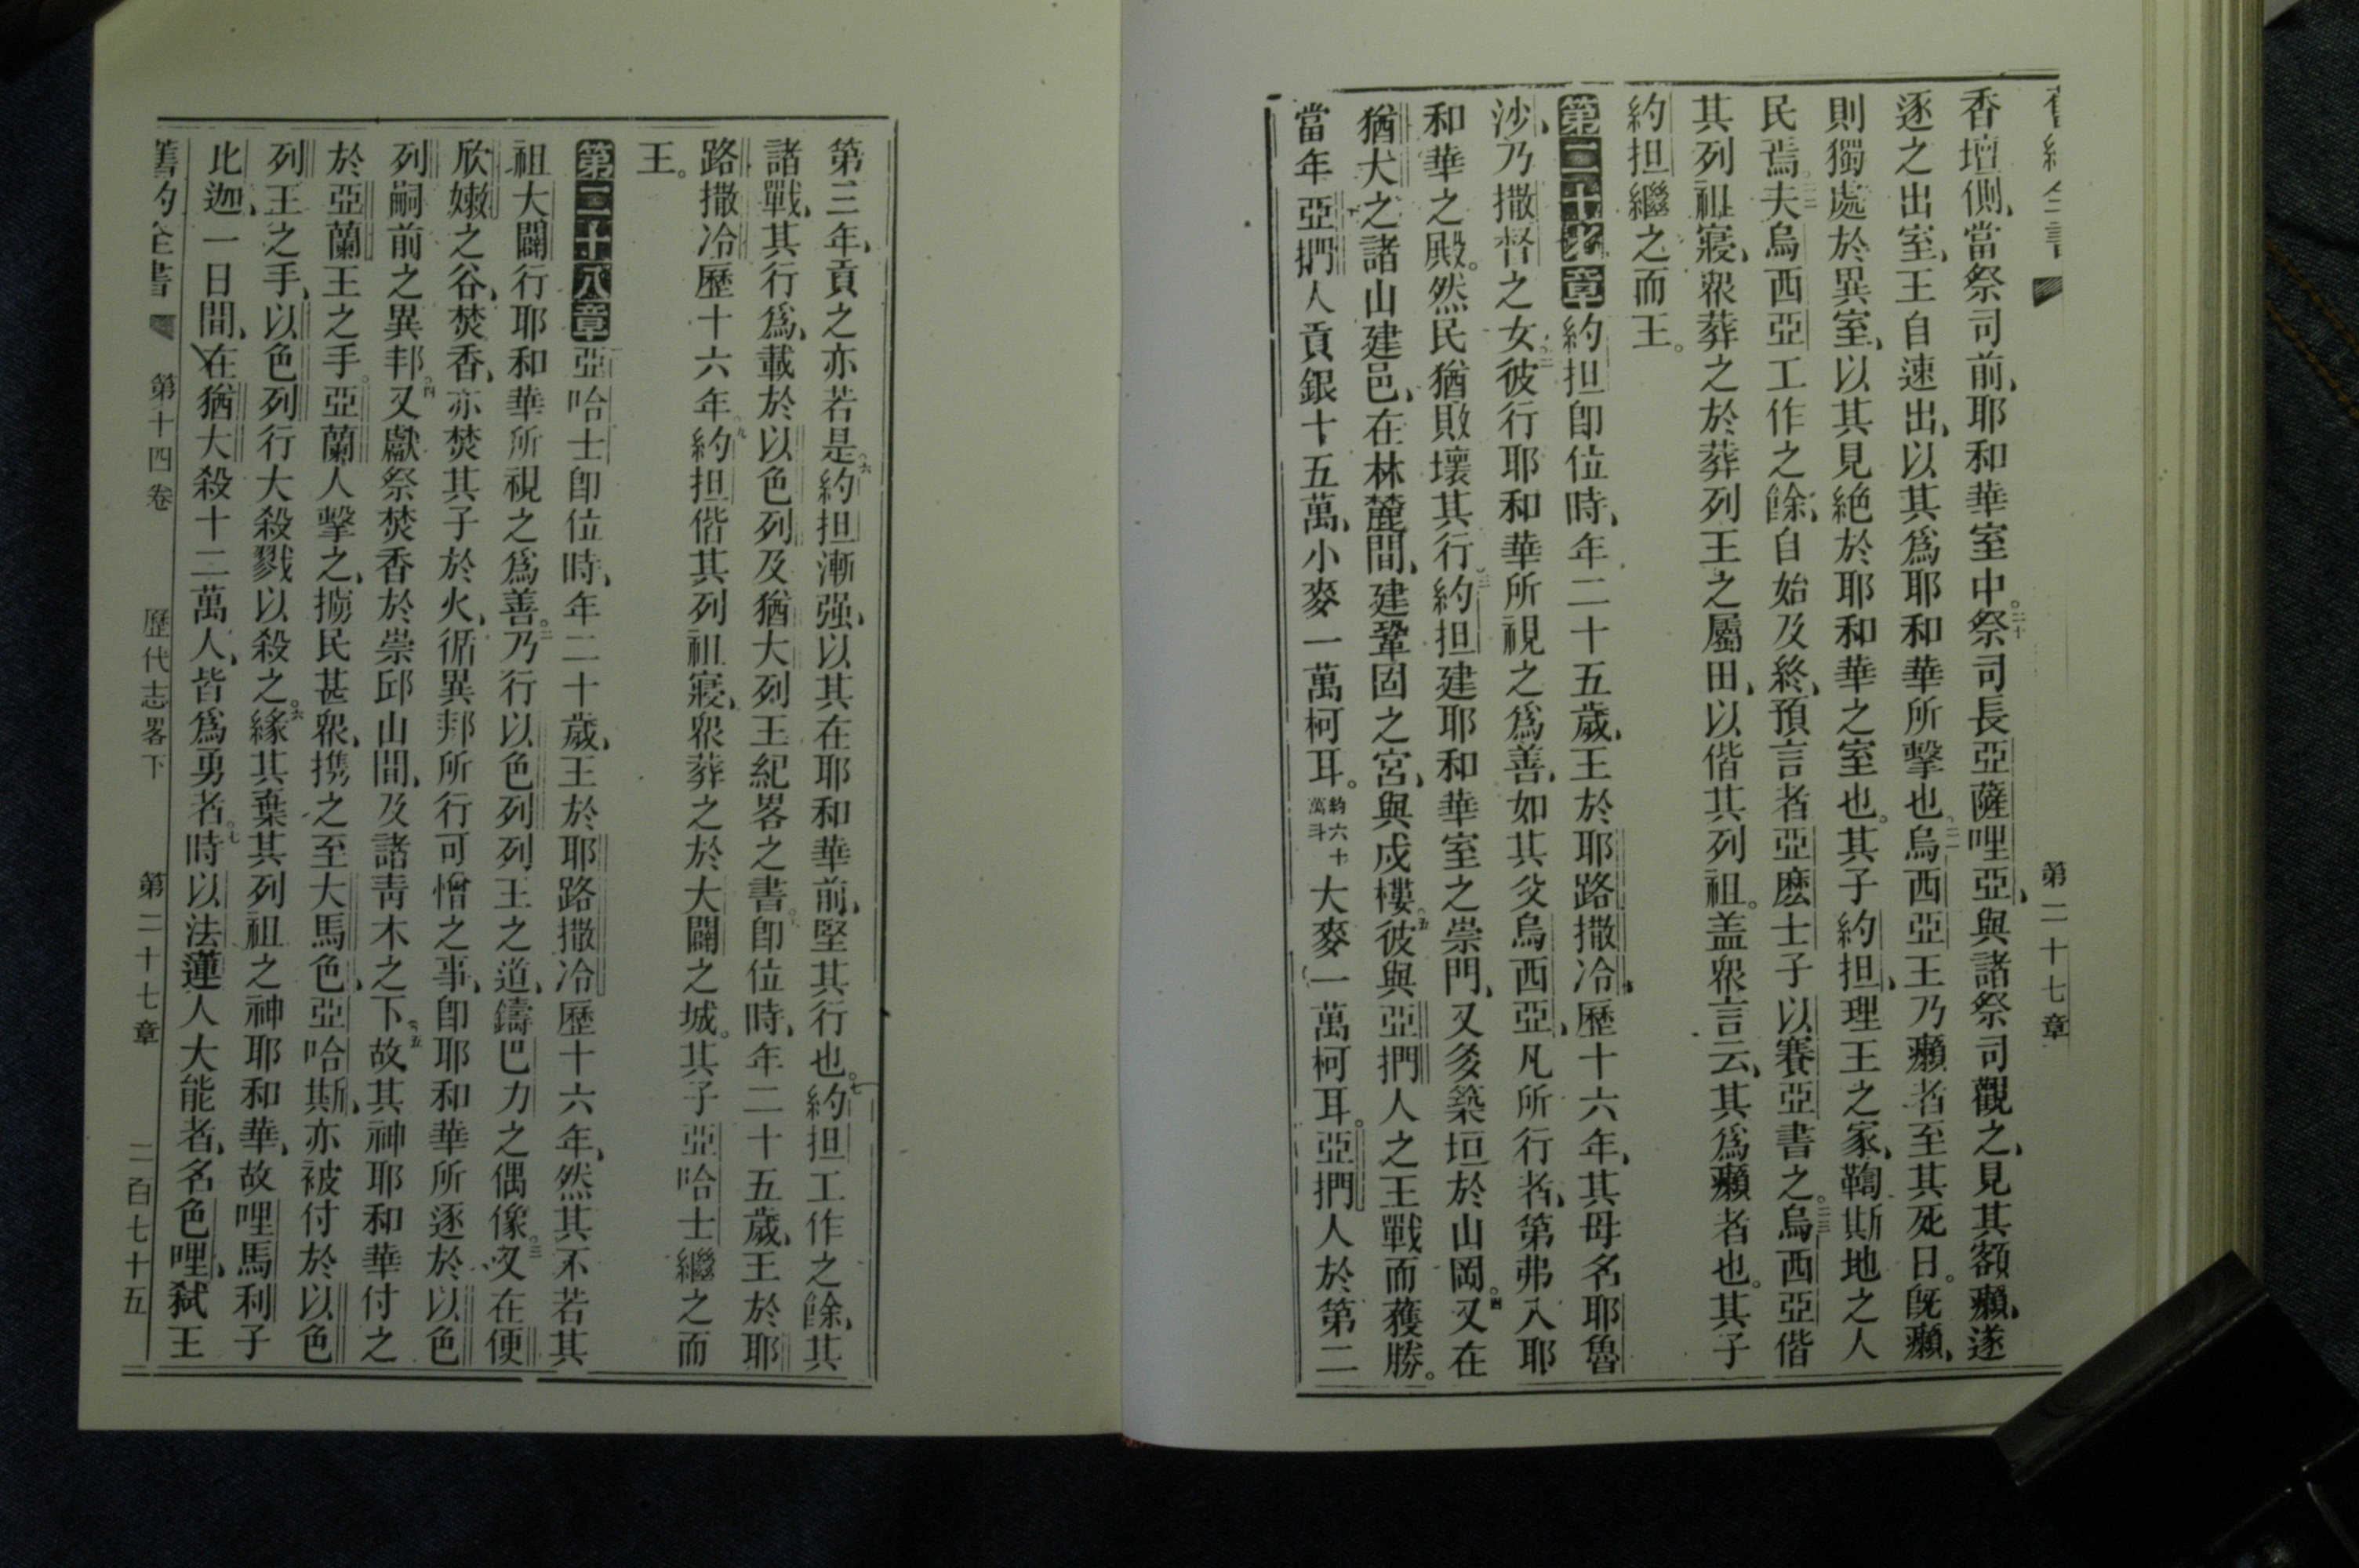 舊約全書 第二十七章
香壇側、當祭司前、耶和華室中。二十祭司長亞薩哩亞、與諸祭司觀之、見其額癩、遂
逐之出室、王自速出、以其爲耶和華所擊也。二一烏西亞王乃癩者至其死日。旣癩、
則獨處於異室、以其見絶於耶和華之室也。其子約担、理王之家、鞫斯地之人
民焉。二二夫烏西亞工作之餘、自始及終、預言者亞麽士子以賽亞書之。二三烏西亞偕
其列祖寢、衆葬之於葬列王之屬田、以偕其列祖。盖衆言云、其爲癩者也。其子
約担繼之而王。
第二十七章約担卽位時、年二十五歲、王於耶路撒冷、歷十六年、其母名耶魯
沙、乃撒督之女。二彼行耶和華所視之爲善、如其父烏西亞、凡所行者、第弗入耶
和華之殿。然民猶敗壞其行。三約担建耶和華室之崇門、又多築垣於山岡。四又在
猶大之諸山建邑、在林麓間、建鞏固之宮、與戍樓。五彼與亞捫人之王戰而獲勝。
當年亞捫人貢銀十五萬、小麥一萬柯耳。約六十萬斗大麥一萬柯耳。亞捫人於第二
第三年、貢之亦若是。六約担漸强、以其在耶和華前、堅其行也。七約担工作之餘、其
諸戰、其行爲、載於以色列及猶大列王紀畧之書。八卽位時、年二十五歲、王於耶
路撒冷歷十六年。九約担偕其列祖寢、衆葬之於大闢之城。其子亞哈士繼之而
王。
第二十八章亞哈士卽位時、年二十歲、王於耶路撒冷歷十六年、然其不若其
祖大闢行耶和華所視之爲善。二乃行以色列列王之道、鑄巴力之偶像。三又在便
欣嫩之谷、焚香、亦焚其子於火、循異邦所行可憎之事、卽耶和華所逐於以色
列嗣前之異邦。四又獻祭焚香於崇邱山間、及諸靑木之下。五故其神耶和華付之
於亞蘭王之手。亞蘭人擊之、擄民甚衆、携之至大馬色、亞哈斯、亦被付於以色
列王之手、以色列行大殺戮以殺之。六緣其棄其列祖之神耶和華、故哩馬利子
比迦、一日間、在猶大殺十二萬人、皆爲勇者。七時以法蓮人大能者、名色哩、弑王
舊約全書 第十四卷 歷代志畧下 第二十七章 二百七十五